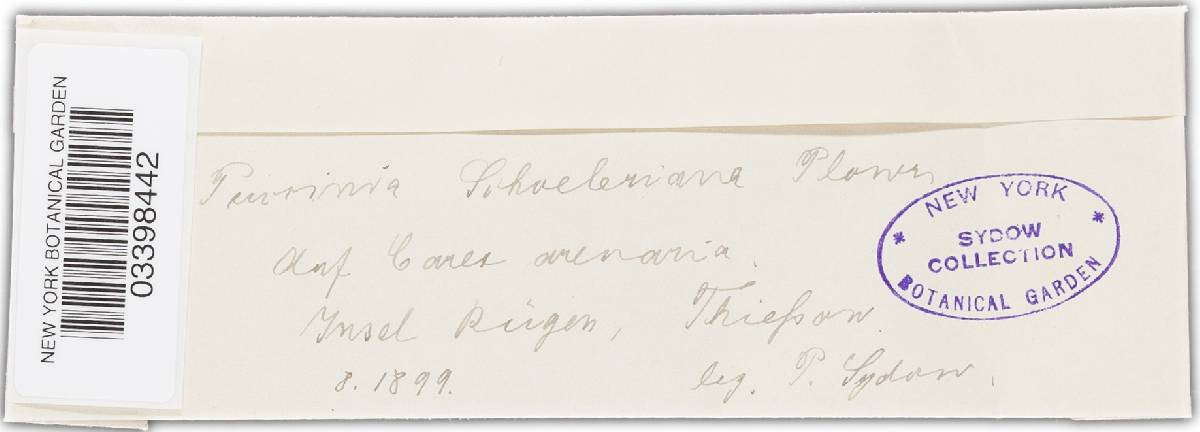 NEW YORK BOTANICAL GARDEN
03398442
Puccinia Schoeleriana Plowr.
Auf Carex arenaria.
Insel Rügen, Thießow.
8. 1899.
leg. P. Sydow.
NEW YORK
SYDOW
COLLECTION
BOTANICAL GARDEN